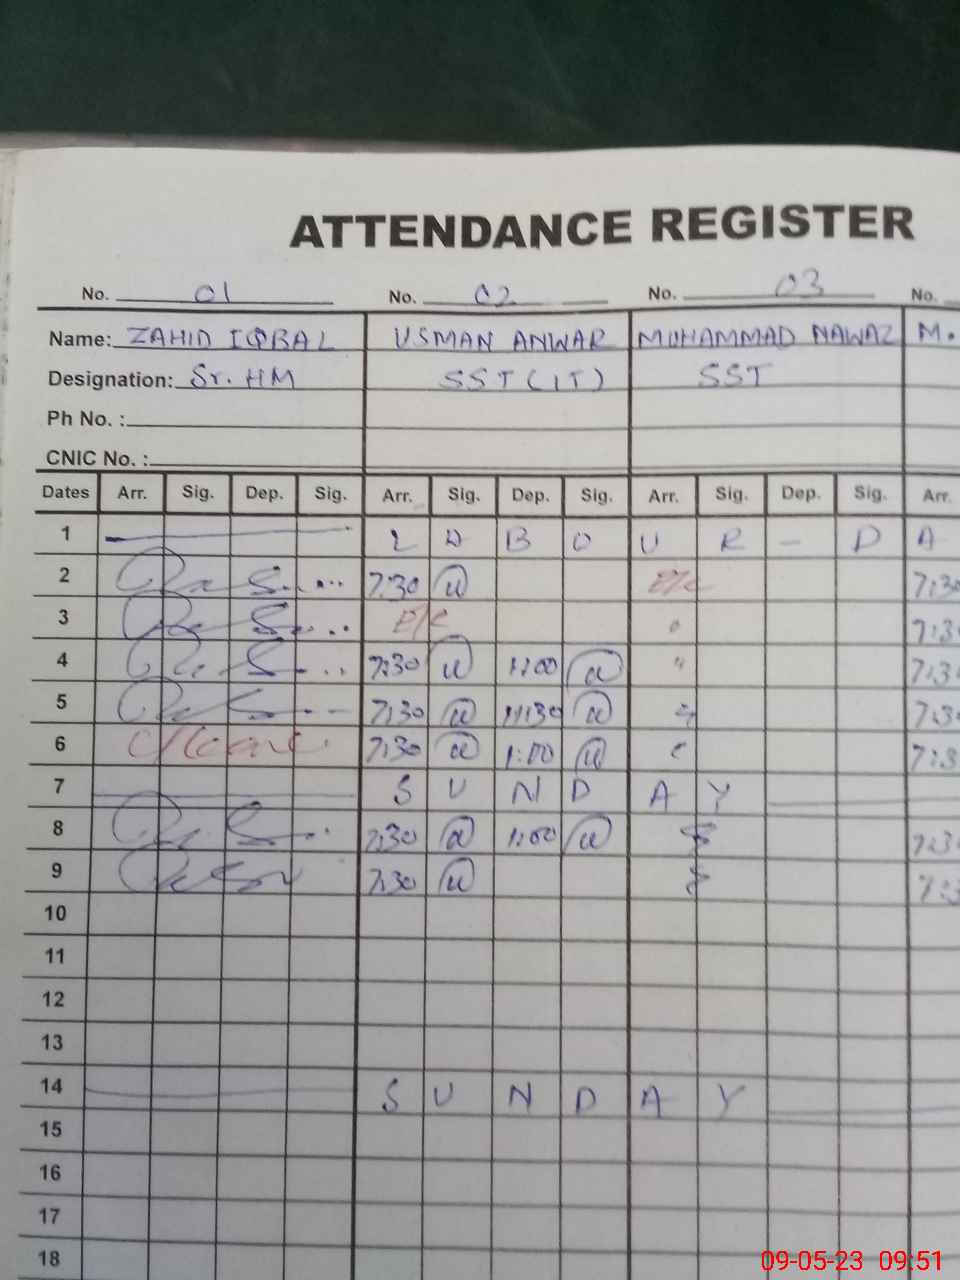 ATTENDANCE REGISTER
No. 01 No. 02 No. 03 No.
Name: ZAHID IQBAL USMAN ANWAR MUHAMMAD NAWAZ M.
Designation: Sr. HM SST (IT) SST
Ph No. :
CNIC No. :
Dates Arr. Sig. Dep. Sig. Arr. Sig. Dep. Sig. Arr. Sig. Dep. Sig. Arr.
1 L A B O U R - D A
2 7:30
3
4 7:30 1:00
5 7:30 11:30
6 7:30 1:00
7 S U N D A Y
8 7:30 1:00
9 7:30
10
11
12
13
14 S U N D A Y
15
16
17
18
09-05-23 09:51